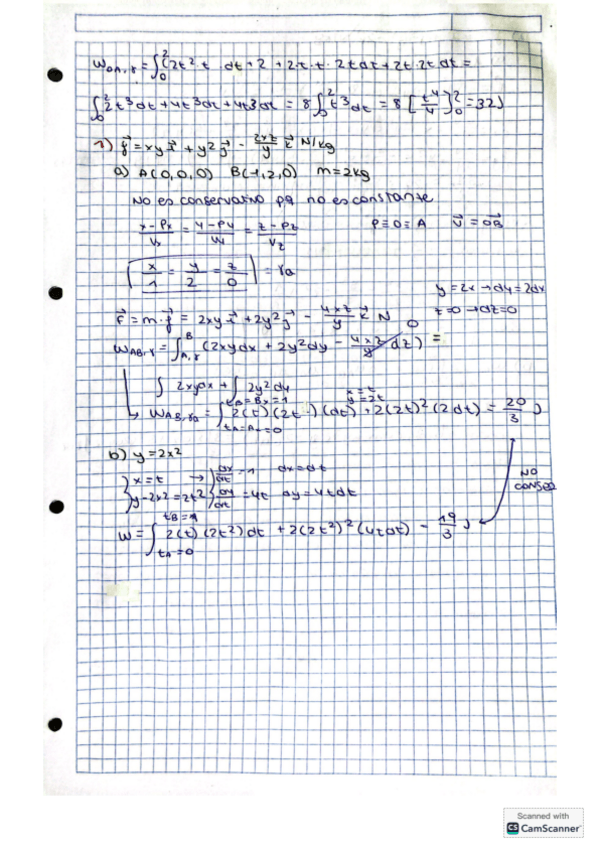 W_OA,γ = ∫₀² (2t²·t·dt·2 + 2·t·t·2tdt + 2t·2t dt =
∫₀² 2t³dt + 4t³dt + 4t3dt = 8∫₀² t³dt = 8[t⁴/4]₀² = 32J
1) f⃗ = xy i⃗ + y² j⃗ - 2xz/y k⃗ N/kg
a) A(0,0,0) B(1,2,0) m=2kg
No es conservativo pq no es constante
x-Px/Vx = y-Py/Vy = z-Pz/Vz P≡O≡A v⃗ = OB⃗
x/1 = y/2 = z/0 = ra
y=2x → dy=2dx
z=0 → dz=0
F⃗ = m·f⃗ = 2xy i⃗ + 2y² j⃗ - 4xz/y k⃗ N
W_AB,γ = ∫_A,γ^B (2xydx + 2y²dy - 4xz/y dz) = 0
∫ 2xydx + ∫ 2y²dy
x=t
y=2t
tB=Bx=1
↳ W_AB,ra = ∫ 2(t)(2t·)(dt) + 2(2t)²(2dt) = 20/3 J
tA=Ax=0
b) y=2x²
x=t → dx/dt = 1 dx=dt
y=2x²=2t² dy/dt = 4t dy=4tdt
NO CONSER
tB=1
W = ∫ 2(t)(2t²)dt + 2(2t²)²(4tdt) = 19/3 J
tA=0
Scanned with
CS CamScanner